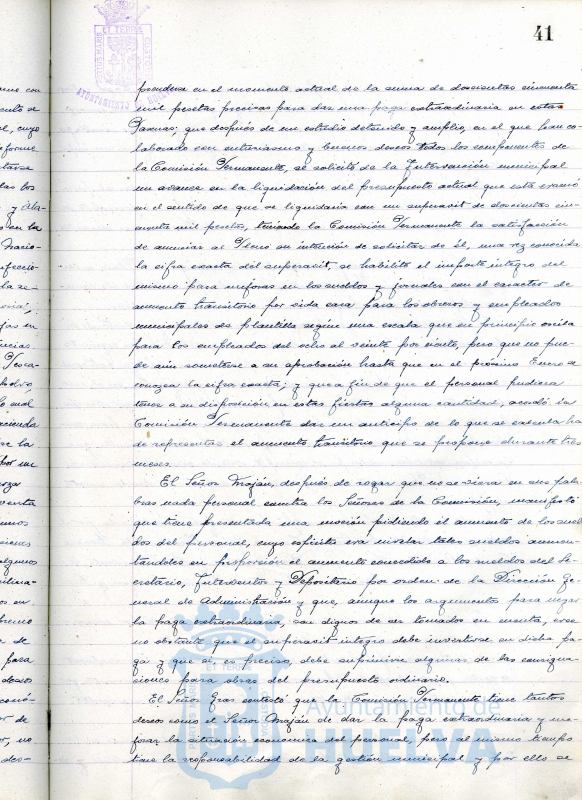 41
prenderse en el momento actual de la suma de doscientas cincuenta
mil pesetas precisas para dar una paga extraordinaria en estas
Pascuas; que después de un estudio detenido y amplio, en el que han co-
laborado con entusiasmo y buenos deseos todos los componentes de
la Comisión Permanente, se solicitó de la Intervención municipal
un avance en la liquidación del presupuesto actual que esta evacuó
en el sentido de que se liquidaría con un superavit de doscientas cin-
cuenta mil pesetas, teniendo la Comisión Permanente la satisfacción
de anunciar al Pleno su intención de solicitar de él, una vez conocida
la cifra exacta del superavit, se habilite el importe íntegro del
mismo para mejoras en los sueldos y jornales con el caracter de
aumento transitorio por vida cara para los obreros y empleados
municipales de plantilla según una escala que en principio oscila
para los empleados del ocho al veinte por ciento, pero que no pue-
de aún someterse a su aprobación hasta que en el próximo Enero se
conozca la cifra exacta; y que a fin de que el personal pudiera
tener a su disposición en estas fiestas alguna cantidad, acordó la
Comisión Permanente dar un anticipo de lo que se
de representar el aumento transitorio que se propone durante tres
meses.
El Señor Maján, después de rogar que no se viera en sus pala-
bras nada personal contra los Señores de la Comisión, manifestó
que tiene presentada una moción pidiendo el aumento de los suel-
dos del personal, cuyo espíritu era nivelar tales sueldos aumen-
tandoles en proporción al aumento concedido a los sueldos del Se-
cretario, Interventor y Depositario por orden de la Dirección Ge-
neral de Administración y que, aunque los argumentos para negar
la paga extraordinaria, son dignos de ser tomados en cuenta, cree
no obstante que el superavit íntegro debe invertirse en dicha pa-
ga y que si es preciso, debe suprimirse algunas de las consigna-
ciones para obras del presupuesto ordinario.
El Señor Gras contestó que la Comisión Permanente tiene tantos
deseos como el Señor Maján de dar la paga extraordinaria y me-
jorar la situación económica del personal, pero al mismo tiempo
tiene la responsabilidad de la gestión municipal y por ello se
Ayuntamiento de
HUELVA